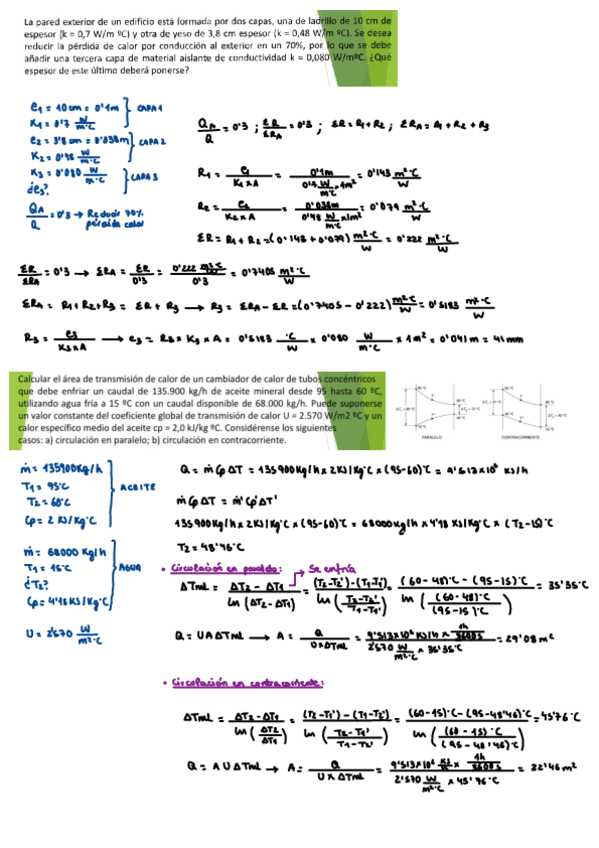 La pared exterior de un edificio está formada por dos capas, una de ladrillo de 10 cm de
espesor (k = 0,7 W/m ºC) y otra de yeso de 3,8 cm espesor (k = 0,48 W/m ºC). Se desea
reducir la pérdida de calor por conducción al exterior en un 70%, por lo que se debe
añadir una tercera capa de material aislante de conductividad k = 0,080 W/mºC. ¿Qué
espesor de este último deberá ponerse?
e1 = 10cm = 0'1m
K1 = 0'7 W/m·ºC
CAPA 1
e2 = 3'8cm = 0'038m
K2 = 0'48 W/m·ºC
CAPA 2
K3 = 0'080 W/m·ºC
¿e3?
CAPA 3
QA/Q = 0'3 → Reducir 70% pérdida calor
QA/Q = 0'3 ; ΣR/ΣRA = 0'3 ; ΣR = R1 + R2 ; ΣRA = R1 + R2 + R3
R1 = e1/(K1×A) = 0'1m/(0'7 W/m·ºC × 1m²) = 0'143 m²·ºC/W
R2 = e2/(K2×A) = 0'038m/(0'48 W/m·ºC × 1m²) = 0'079 m²·ºC/W
ΣR = R1 + R2 = (0'143 + 0'079) m²·ºC/W = 0'222 m²·ºC/W
ΣR/ΣRA = 0'3 → ΣRA = ΣR/0'3 = 0'222 m²·ºC/W / 0'3 = 0'7405 m²·ºC/W
ΣRA = R1 + R2 + R3 = ΣR + R3 → R3 = ΣRA − ΣR = (0'7405 − 0'222) m²·ºC/W = 0'5183 m²·ºC/W
R3 = e3/(K3×A) → e3 = R3 × K3 × A = 0'5183 ºC/W × 0'080 W/m·ºC × 1m² = 0'041m = 41mm
Calcular el área de transmisión de calor de un cambiador de calor de tubos concéntricos
que debe enfriar un caudal de 135.900 kg/h de aceite mineral desde 95 hasta 60 ºC,
utilizando agua fría a 15 ºC con un caudal disponible de 68.000 kg/h. Puede suponerse
un valor constante del coeficiente global de transmisión de calor U = 2.570 W/m2 ºC y un
calor específico medio del aceite cp = 2,0 kJ/kg ºC. Considérense los siguientes
casos: a) circulación en paralelo; b) circulación en contracorriente.
PARALELO
CONTRACORRIENTE
ṁ = 135900 Kg/h
T1 = 95ºC
T2 = 60ºC
Cp = 2 KJ/Kg·ºC
ACEITE
ṁ = 68000 Kg/h
T1 = 15ºC
¿T2?
Cp = 4'18 KJ/Kg·ºC
AGUA
U = 2'570 W/m²·ºC
Q = ṁ Cp ΔT = 135900 Kg/h × 2 KJ/Kg·ºC × (95-60)ºC = 9'513×10⁶ KJ/h
ṁ Cp ΔT = ṁ' Cp' ΔT'
135900 Kg/h × 2 KJ/Kg·ºC × (95-60)ºC = 68000 Kg/h × 4'18 KJ/Kg·ºC × (T2-15)ºC
T2 = 48'46ºC
• Circulación en paralelo: Se enfría
ΔTml = (ΔT2 − ΔT1)/ln(ΔT2 − ΔT1) = (T2-T2')-(T1-T1')/ln((T2-T2')/(T1-T1')) = (60-48)ºC-(95-15)ºC/ln((60-48)ºC/(95-15)ºC) = 35'35ºC
Q = U A ΔTml → A = Q/(U×ΔTml) = 9'513×10⁶ KJ/h × 1h/3600s / (2'570 W/m²·ºC × 35'35ºC) = 29'08 m²
• Circulación en contracorriente:
ΔTml = (ΔT2 − ΔT1)/ln(ΔT2/ΔT1) = (T2-T1')-(T1-T2')/ln((T2-T1')/(T1-T2')) = (60-15)ºC-(95-48'46)ºC/ln((60-15)ºC/(95-48'46)ºC) = 45'76ºC
Q = A U ΔTml → A = Q/(U×ΔTml) = 9'513×10⁶ KJ/h × 1h/3600s / (2'570 W/m²·ºC × 45'76ºC) = 22'46 m²